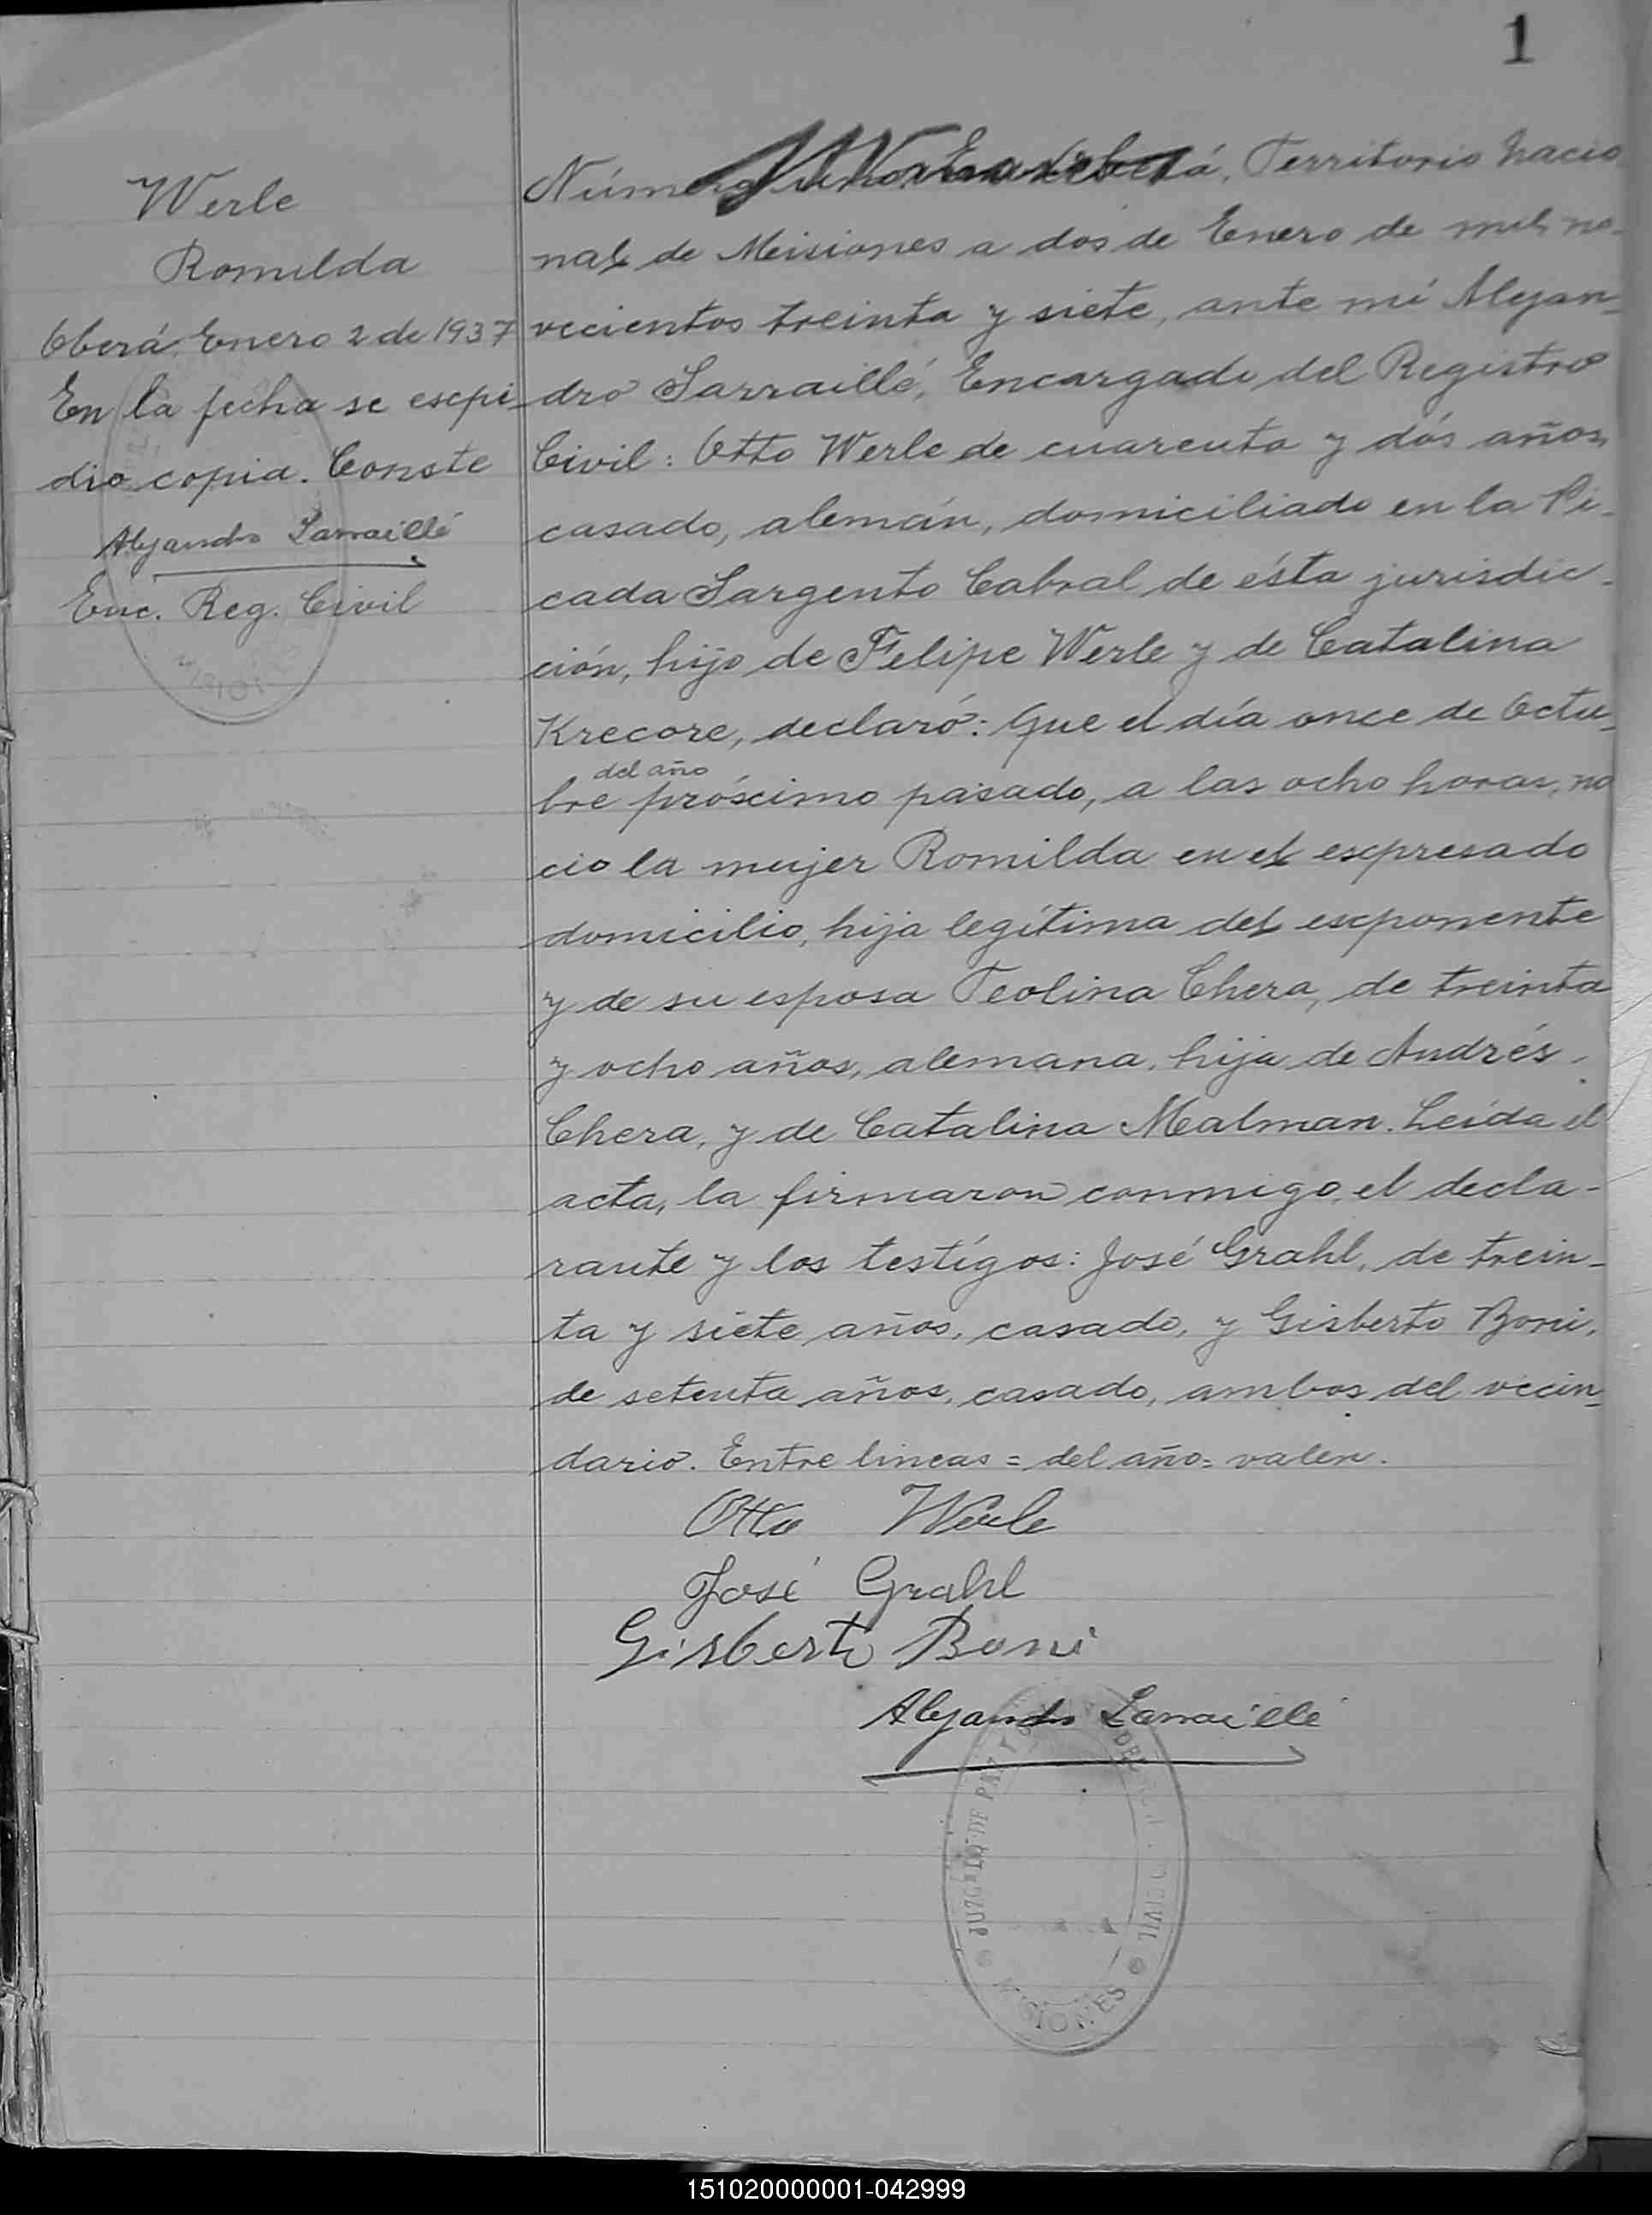 1
Werle
Romilda
Oberá, Enero 2 de 1937
En la fecha se escpi-
dio copia. Conste
Alejandro Sarraillé
Enc. Reg. Civil
MISIONES
Número uno. En Oberá, Territorio nacio
nal de Meisiones a dos de Enero de mil no-
vecientos treinta y siete, ante mí Alejan-
dro Sarraillé, Encargado del Registro
Civil: Otto Werle de cuarenta y dós años,
casado, alemán, domiciliado en la Pi-
cada Sargento Cabral de ésta jurisdic-
ción, hijo de Felipe Werle y de Catalina
Krecore, declaró: Que el día once de Octu-
del año
bre próscimo pasado, a las ocho horas, na
cio la mujer Romilda en el escpresado
domicilio, hija legítima del escponente
y de su esposa Teolina Chera, de treinta
y ocho años, alemana, hija de Andrés
Chera, y de Catalina Malman. Leída el
acta, la firmaron conmigo, el decla-
rante y los testígos: José Grahl, de trein-
ta y siete años, casado, y Gisberto Boni,
de setenta años, casado, ambos del vecin-
dario. Entre lineas = del año = valen.
Otto Werle
José Grahl
Gisberto Boni
Alejandro Sarraillé
JUZGADO DE PAZ Y CIVIL
MISIONES
151020000001-042999